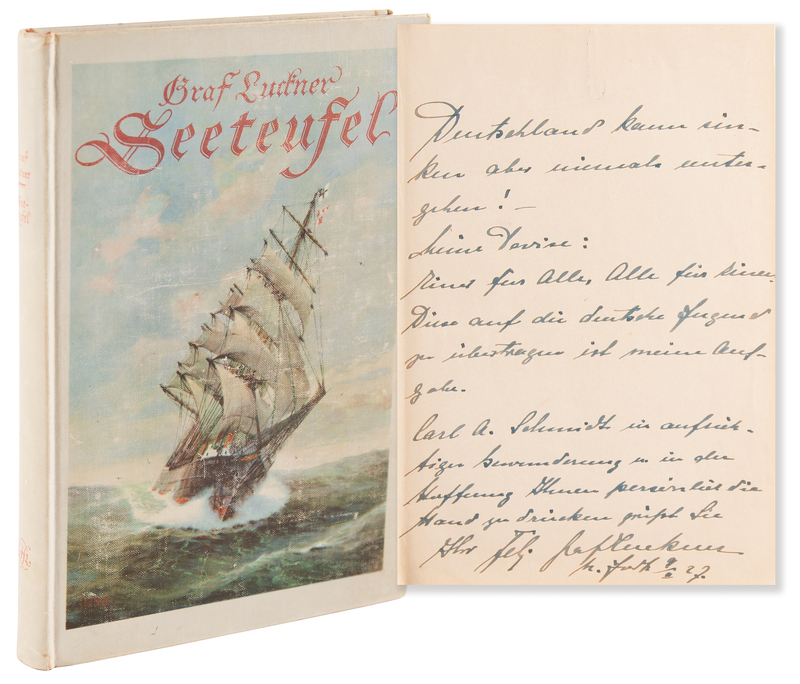 Graf Luckner
Seeteufel
Deutschland kann sin-
ken aber niemals unter-
gehen! –
Meine Devise:
Einer für Alle, Alle für Einen
Diese auf die deutsche Jugend
zu übertragen ist meine Auf-
gabe.
Carl A. Schmidt in aufrich-
tiger bewunderung u in der
Hoffnung Ihnen persönlich die
Hand zu drücken grüßt Sie
Ihr Felix Graf Luckner
27.